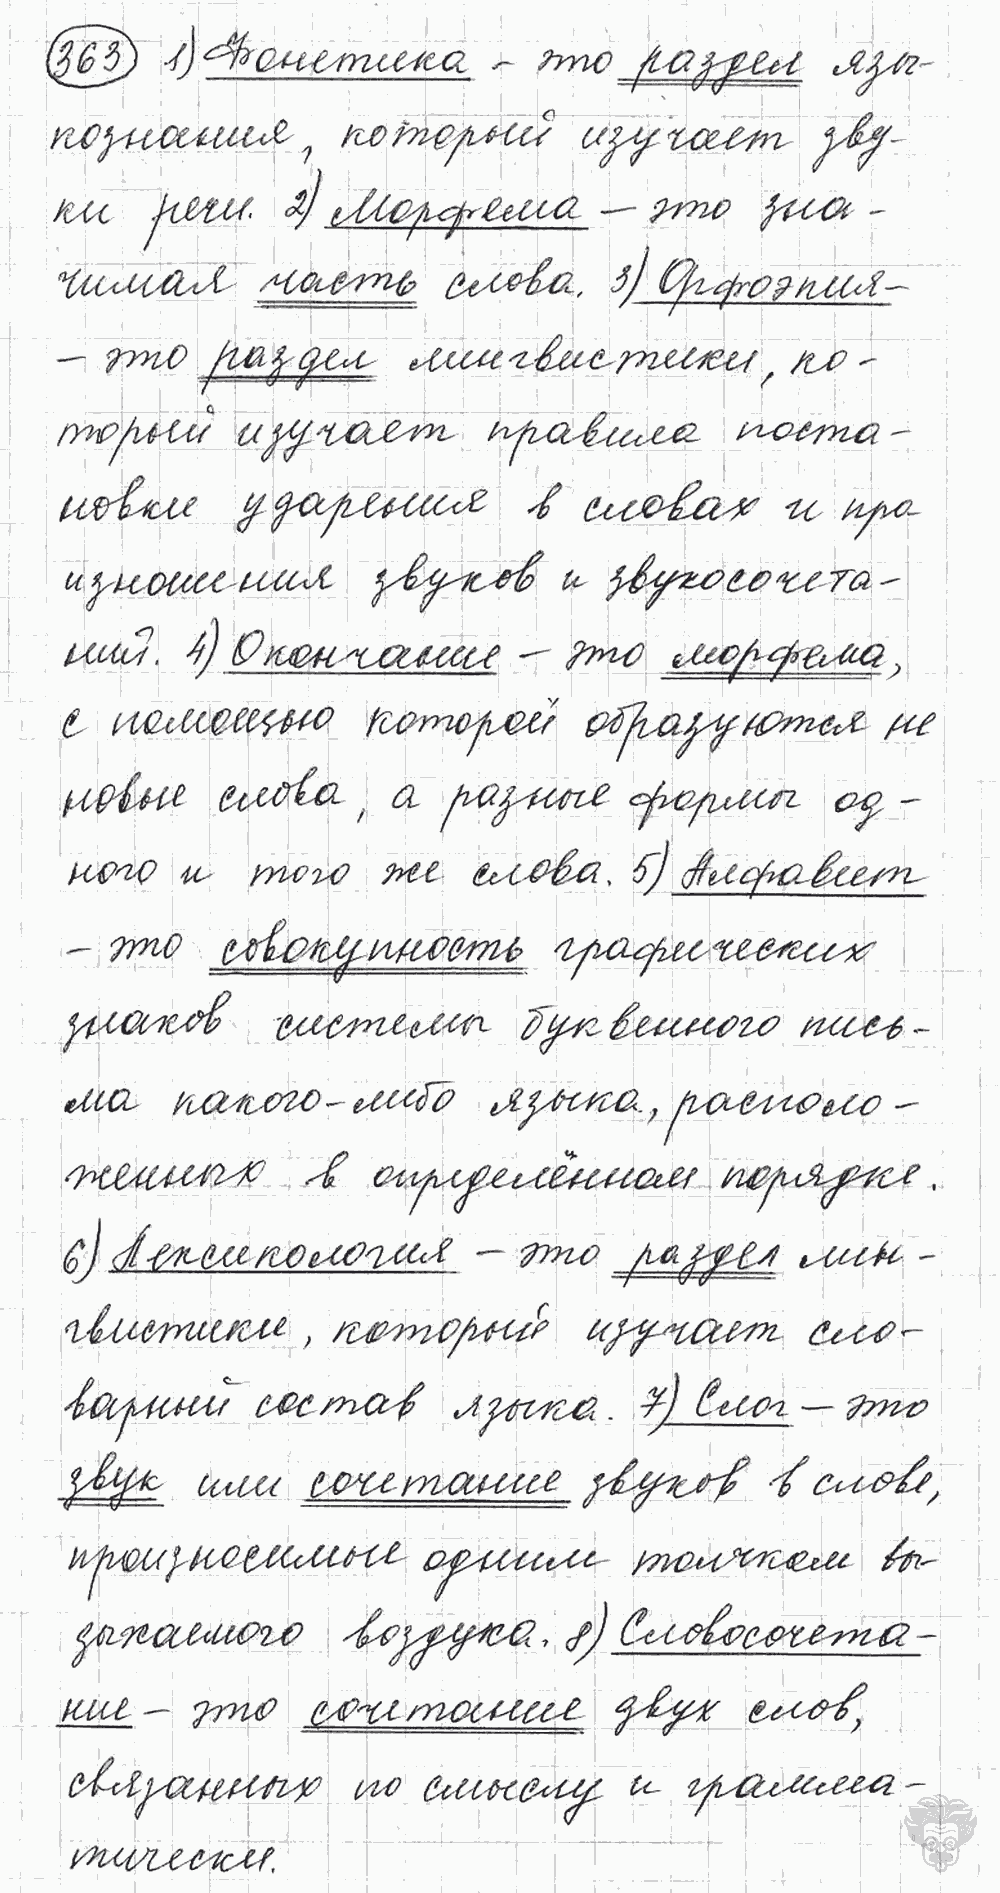 363 1) Фонетика - это раздел язы-
кознания, который изучает зву-
ки речи. 2) Морфема – это зна-
чимая часть слова. 3) Орфоэпия–
– это раздел лингвистики, ко-
торый изучает правила поста-
новки ударения в словах и про-
изношения звуков и звукосочета-
ний. 4) Окончание – это морфема,
с помощью которой образуются не
новые слова, а разные формы од-
ного и того же слова. 5) Алфавит
– это совокупность графических
знаков системы буквенного пись-
ма какого-либо языка, располо-
женных в определённом порядке.
6) Лексикология – это раздел лин-
гвистики, который изучает сло-
варный состав языка. 7) Слог – это
звук или сочетание звуков в слове,
произносимые одним толчком вы-
дыхаемого воздуха. 8) Словосочета-
ние – это сочетание двух слов,
связанных по смыслу и грамма-
тически.